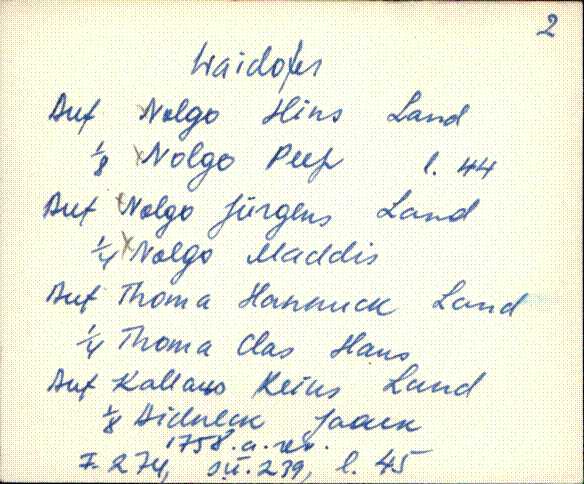 2
Waidofer
Auf Nolgo Hins Land
1/8 Nolgo Peep l. 44
Auf Nolgo Jürgens Land
1/4 Nolgo Maddis
Auf Thoma Hannuck Land
1/4 Thoma Clas Hans
Auf Kallaus Reins Land
1/8 Didneck Jaack
1758. a. rev.
F. 274, s. ü. 239, l. 45